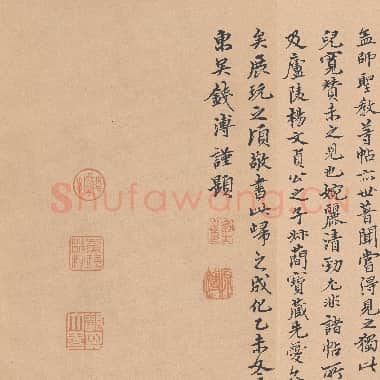 孟師聖教等帖亦世著聞嘗得見之獨此
兒寬贊未之見也婉麗清勁尤非諸帖所
及廬陵楊文貞公之子叔簡寶藏先愛久
矣展玩之頃敬書此歸之成化乙未冬
東吳錢溥謹題
Shufawang.CN